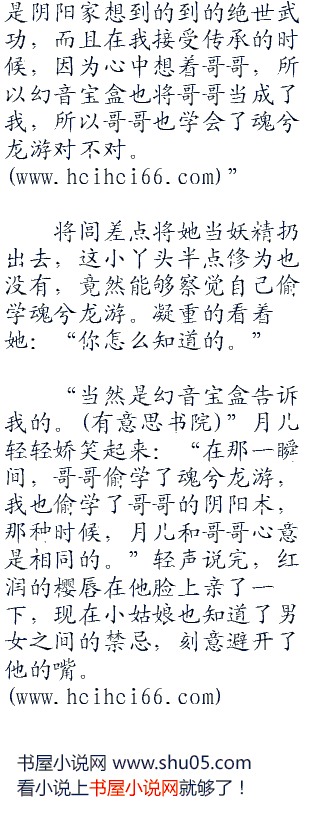 是阴阳家想到的到的绝世武
功，而且在我接受传承的时
候，因为心中想着哥哥，所
以幻音宝盒也将哥哥当成了
我，所以哥哥也学会了魂兮
龙游对不对。
(www.hcihci66.com)”
将闾差点将她当妖精扔
出去，这小丫头半点修为也
没有，竟然能够察觉自己偷
学魂兮龙游。凝重的看着
她：“你怎么知道的。”
“当然是幻音宝盒告诉
我的。(有意思书院)”月儿
轻轻娇笑起来：“在那一瞬
间，哥哥偷学了魂兮龙游，
我也偷学了哥哥的阴阳术，
那种时候，月儿和哥哥心意
是相同的。”轻声说完，红
润的樱唇在他脸上亲了一
下，现在小姑娘也知道了男
女之间的禁忌，刻意避开了
他的嘴。
(www.hcihci66.com)
书屋小说网 www.shu05.com
看小说上书屋小说网就够了！